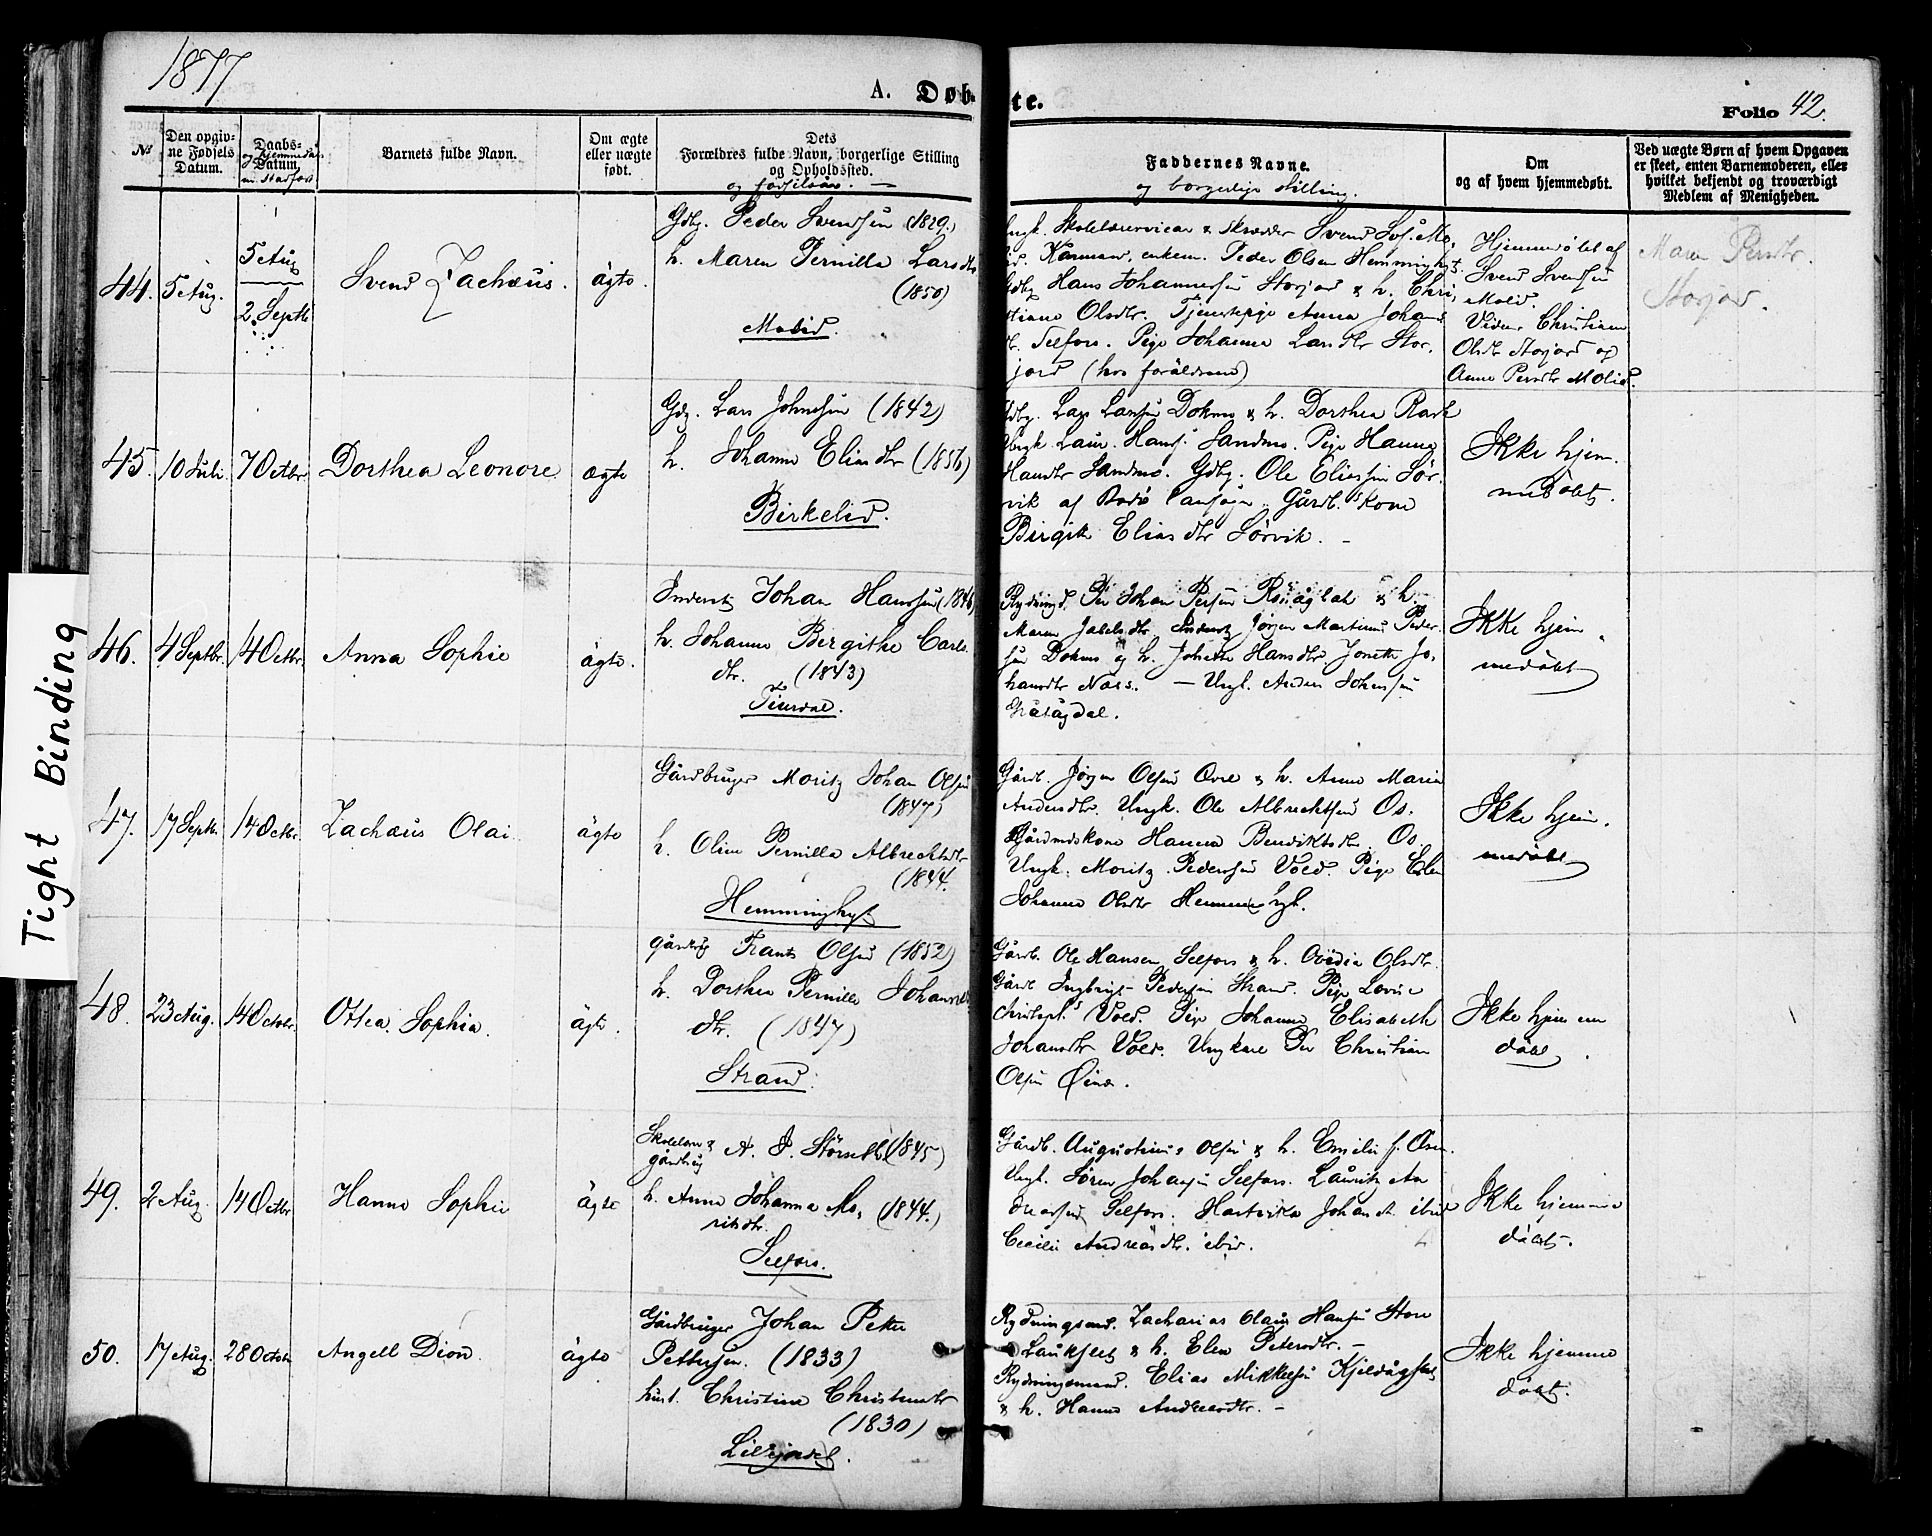 1877
A. Døb-
te.
Folio 42.
No
Den opgiv-
ne Fødsels
Datum.
Daabs-
og hjemmedaabs
Datum,
Barnets fulde Navn.
Om ægte
eller uægte
født.
Dets
Forældres fulde Navn, borgerlige Stilling
og Opholdssted.
og fødselsaar. —
Faddernes Navne.
og borgerlige stilling.
Om
og af hvem hjemmedøbt.
Ved uægte Børn af hvem Opgaven
er skeet, enten Barnemoderen, eller
hvilket bekjendt og troværdigt
Medlem af Menigheden.
Tight Binding
44. 5 Aug.
5 Aug
2 Septb
Svend Zachæus. ägte.
Gdbg. Peder Svendsen (1829.)
h. Maren Pernilla Larsdtr
(1850)
Molid.
Ungk. Skolelærervicar & Skrædder Svend Svs. Mo,
lid. Kaarmand, enkem. Peder Olsen Hemminghyt.
Gdbg Hans Johannesen Storjord & h. Chri,
stiane Olsdtr. Tjenestepige Anna Johans
dtr. Selfors. Pige Johanna Larsdtr Stor,
jord (hos forældrene)
Hjemmedøbt af
Svend Svendsen
Molid.
Vidner Christiane
Olsdtr Storjord og
Anne Persdtr Molid.
Maren Persdtr.
Storjord.
45. 10 Juli. 7 Octbr. Dorthea Leonore. ægte
Gdg. Lars Johnsen (1842)
h. Johanna Eliasdtr (1856)
Birkelid.
Gdbg. Lars Larsen Dokmo & h. Dorthea Rask
Ungk. Laur. Hans. Sandmo. Pige Hanna
Hansdtr Sandmo. Gdbg. Ole Eliassen Sör,
vik af Bodö Landsogn. Gårdb.s Kone
Birgit Eliasdtr Sörvik. —
Ikke hjem.
medöbt.
46. 4 Septbr. 14 Octbr. Anna Sophie ägte.
Inderst Johan Hanssen (1846)
h. Johanna Bergithe Carls
dtr. (1843)
Tiurdal.
Rydningsmd. Per Johan Persen Rösåglab & h.
Maren Jakobsdtr. Inderst Jörgen Martinus Peder
sen Dokmo og h. Johanna Hansdtr. Jonette Jo,
hansdtr Næss. — Ungk. Anders Johansen
Gråtågdal.
Ikke hjem
medöbt
47. 17 Septb. 14 Octbr. Zachæus Olai ägte
Gårdbruger Moritz Johan Olsen
(1847)
h. Oline Pernilla Albrechtsdtr
(1844.
Hemminghyt
Gårdb. Jörgen Olsen Övre & h. Anne Maria
Andersdtr. Ungk. Ole Albrechtsen Os.
Gårdmdskone Hanna Benediktsdtr. Os.
Ungk. Moritz Pedersen Vold. Pige Ellen
Johanna Olsdtr Hemminghyt.
Ikke hjem.
medöbt
48. 23 Aug. 14 Octobr. Ottea Sophia. ägte.
Gårdbrug Frants Olsen (1852)
h. Dorthea Pernille Johannes
dtr. (1847)
Strand.
Gårdb. Ole Hansen Selfors & h. Ovedia Olsdtr.
Gårdb Ingbrigt Pedersen Strand. Pige Lovise
Christophd. Vold. Pige Johanna Elisabeth
Johansdtr Vold. Ungkarl Per Christian
Olsen Öines.
Ikke hjem em
döbt.
49. 2 Aug. 14 Octbr Hanna Sophie ägte
Skolelærer &
gårdbrug A. J. Störseth (1845)
h. Anne Johanna Mo, (1844.)
ritsdtr.
Selfors.
Gårdb. Augustinus Olsen & h. Emelie f. Övre.
Ungk. Sören Johansen Selfors. Lauritz An
dreassen Selfors. Hartvika Johansdt. ibid
Cecilie Andreasdtr. ibid.
Ikke hjemme
döbt.
50. 17 Aug. 28 Octobr Angell Dion. ägte
Gårdbruger Johan Petter
Pettersen. (1833)
hust. Christine Christensdtr
(1830)
Lillfjordet.
Rydningsmd. Zacharias Olaus Hansen Store
Laukslet & h. Elen Petersdtr. —
Rydningsmand. Elias Mikkelsen Kjeldågsletten
& h. Hanna Andreasdtr. —
Ikke hjemme
döbt.